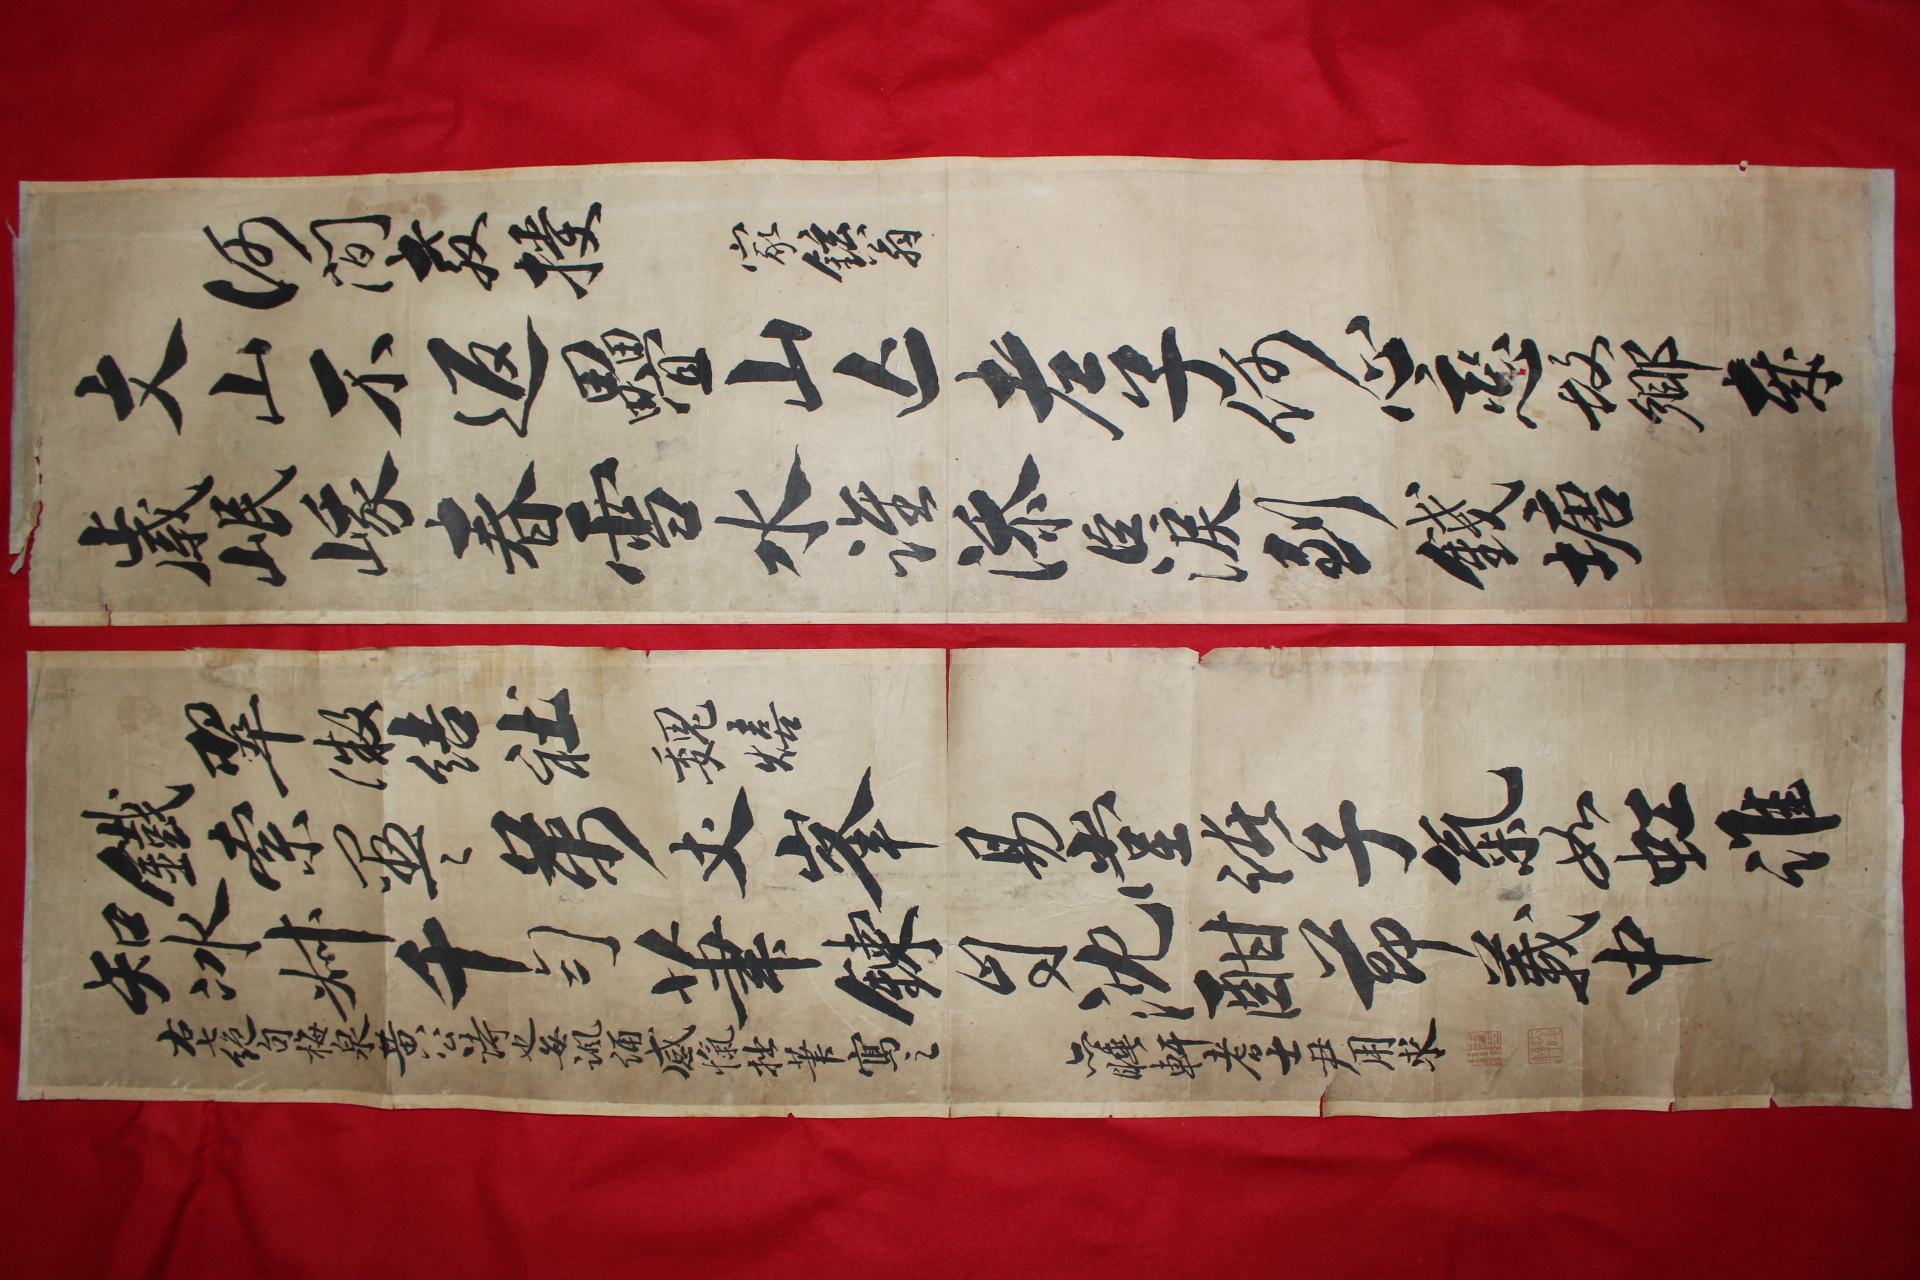 河間教授 家鉉翁
文山不返疊山亡老子何心戀故鄉歲
歲岷峨春雪水誰添臣淚到錢塘
翠微結社 魏禧
鐵索〻萬丈峯易堂諸子氣如虹誰
知冰叔千勻筆鍊自沈酣節義中
右七絕句梅泉黃公詩也每諷誦感愾拙筆寫之 睡軒耆士尹用求